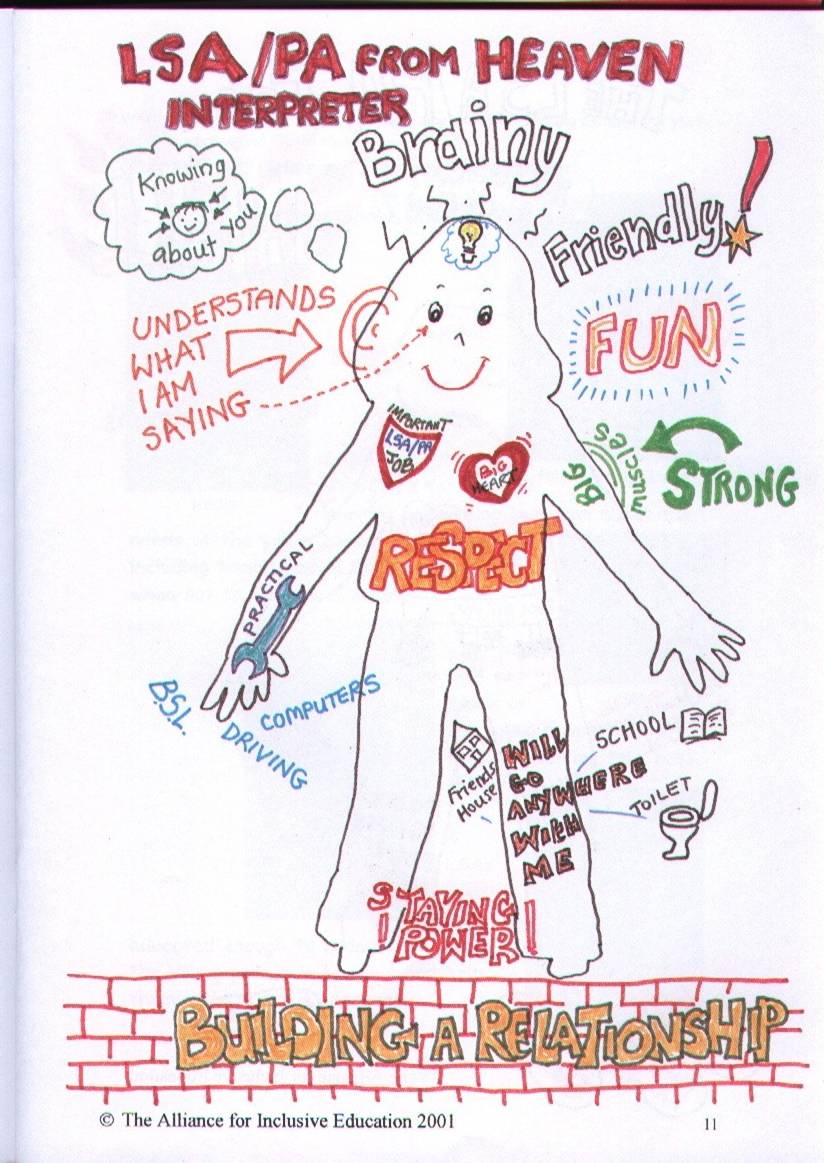 LSA/PA FROM HEAVEN
INTERPRETER
Brainy
Knowing
about you
Friendly!
UNDERSTANDS
WHAT
I AM
SAYING
FUN
IMPORTANT
LSA/PA
JOB
BIG
HEART
BIG
MUSCLES
STRONG
RESPECT
PRACTICAL
B.S.L.
DRIVING
COMPUTERS
Friends
House
WILL
GO
ANYWHERE
WITH
ME
SCHOOL
TOILET
STAYING
POWER!
BUILDING A RELATIONSHIP
© The Alliance for Inclusive Education 2001
11